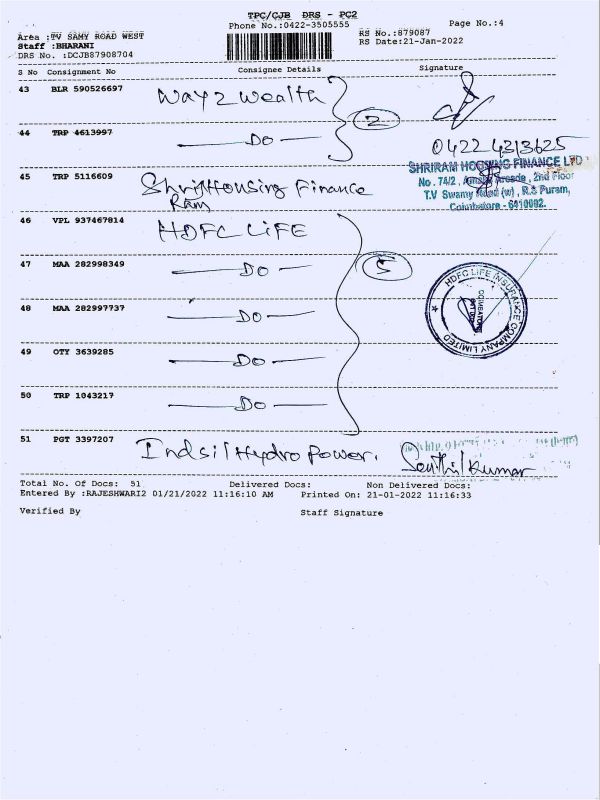 TPC/CJB DRS - PC2
Phone No.:0422-3505555 Page No.:4
Area :TV SAMY ROAD WEST RS No.:879087
Staff :BHARANI RS Date:21-Jan-2022
DRS No. :DCJB87908704
S No Consignment No Consignee Details Signature
43 BLR 590526697 Way2Wealth
2
44 TRP 4613997 — DO — 0422 4313625
SHRIRAM HOUSING FINANCE LTD
45 TRP 5116609 Shri Housing Finance
Ram
No. 74/2, Arcade, 2nd Floor
T.V Swamy Road (w), R.S Puram,
Coimbatore - 6410002.
46 VPL 937467814 HDFC LIFE
47 MAA 282998349 — DO — 5
48 MAA 282997737 — DO —
HDFC LIFE INSURANCE COMPANY LIMITED
COIMBATORE
49 OTY 3639285 — DO —
50 TRP 1043217 — DO —
51 PGT 3397207 Indsil Hydro Power. Senthil Kumar
Total No. Of Docs: 51 Delivered Docs: Non Delivered Docs:
Entered By :RAJESHWARI2 01/21/2022 11:16:10 AM Printed On: 21-01-2022 11:16:33
Verified By Staff Signature